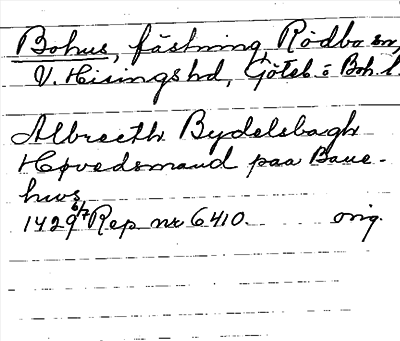 Bohus, fästning, Rödbo sn,
V. Hisingshd, Göteb o Boh. l.
Albrecth Bydelsbagh
Høvedsmand paa Baue-
hws
1429 6/7 Rep nr 6410. orig.